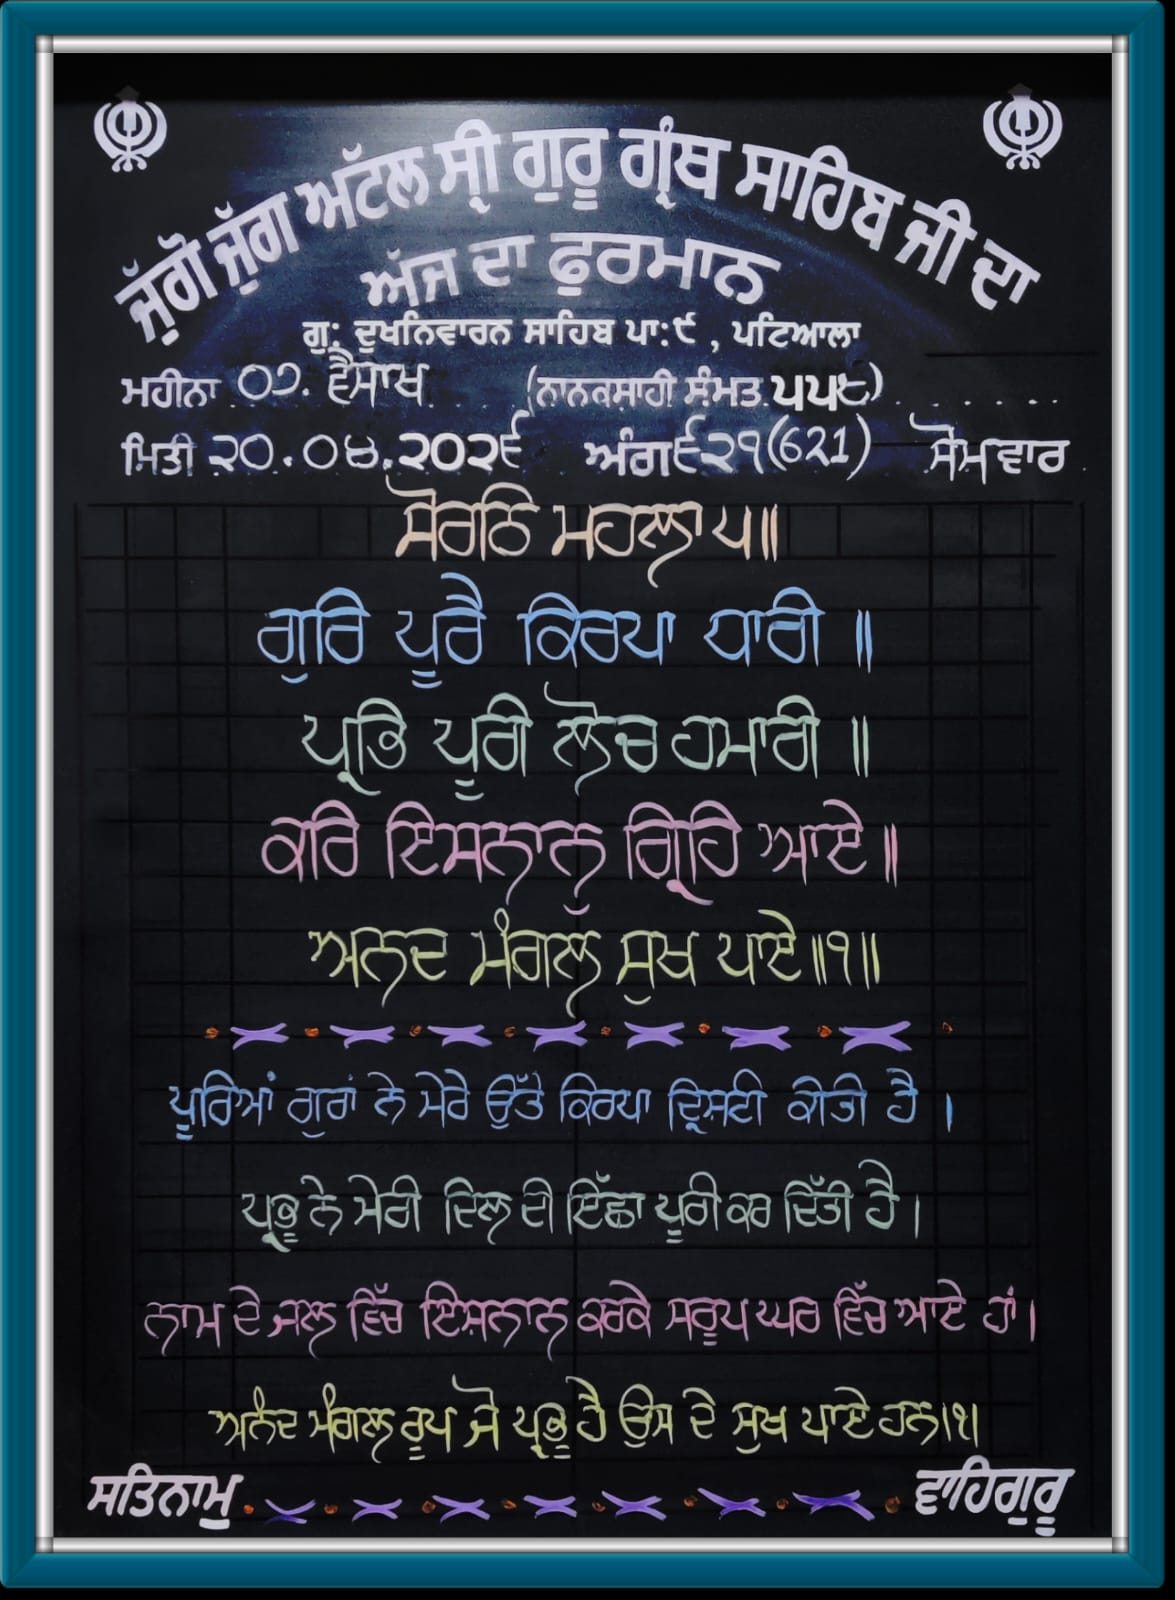 ਜੁੱਗੋ ਜੁੱਗ ਅਟੱਲ ਸ੍ਰੀ ਗੁਰੂ ਗ੍ਰੰਥ ਸਾਹਿਬ ਜੀ ਦਾ
ਅੱਜ ਦਾ ਫੁਰਮਾਨ
ਗੁ: ਦੁਖਨਿਵਾਰਨ ਸਾਹਿਬ ਪਾ:੯ , ਪਟਿਆਲਾ
ਮਹੀਨਾ ੦੭. ਵੈਸਾਖ (ਨਾਨਕਸ਼ਾਹੀ ਸੰਮਤ ੫੫੮)
ਮਿਤੀ ੨੦.੦੪.੨੦੨੬ ਅੰਗ ੬੨੧(621) ਸੋਮਵਾਰ
ਸੋਰਠਿ ਮਹਲਾ ੫॥
ਗੁਰਿ ਪੂਰੈ ਕਿਰਪਾ ਧਾਰੀ ॥
ਪ੍ਰਭਿ ਪੂਰੀ ਲੋਚ ਹਮਾਰੀ ॥
ਕਰਿ ਇਸਨਾਨੁ ਗ੍ਰਿਹਿ ਆਏ॥
ਅਨਦ ਮੰਗਲ ਸੁਖ ਪਾਏ॥੧॥
ਪੂਰਿਆਂ ਗੁਰਾਂ ਨੇ ਮੇਰੇ ਉੱਤੇ ਕਿਰਪਾ ਦ੍ਰਿਸ਼ਟੀ ਕੀਤੀ ਹੈ ।
ਪ੍ਰਭੂ ਨੇ ਮੇਰੀ ਦਿਲ ਦੀ ਇੱਛਾ ਪੂਰੀ ਕਰ ਦਿੱਤੀ ਹੈ ।
ਨਾਮ ਦੇ ਜਲ ਵਿੱਚ ਇਸ਼ਨਾਨ ਕਰਕੇ ਸਰੂਪ ਘਰ ਵਿੱਚ ਆਏ ਹਾਂ ।
ਅਨੰਦ ਮੰਗਲ ਰੂਪ ਜੋ ਪ੍ਰਭੂ ਹੈ ਉਸ ਦੇ ਸੁਖ ਪਾਏ ਹਨ।੧।
ਸਤਿਨਾਮੁ ਵਾਹਿਗੁਰੂ